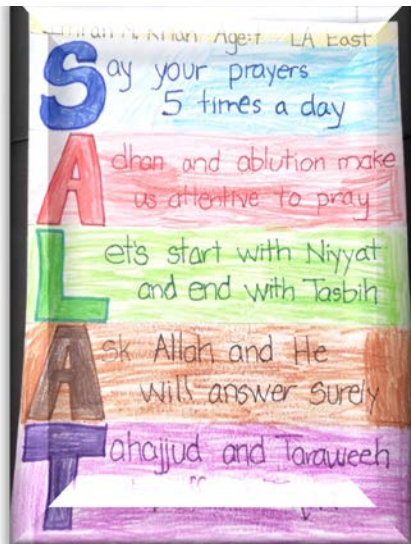 Imran A. Khan Age:7 LA East
Say your prayers
5 times a day
Adhan and ablution make
us attentive to pray
Let's start with Niyyat
and end with Tasbih
Ask Allah and He
will answer surely
Tahajjud and Taraweeh